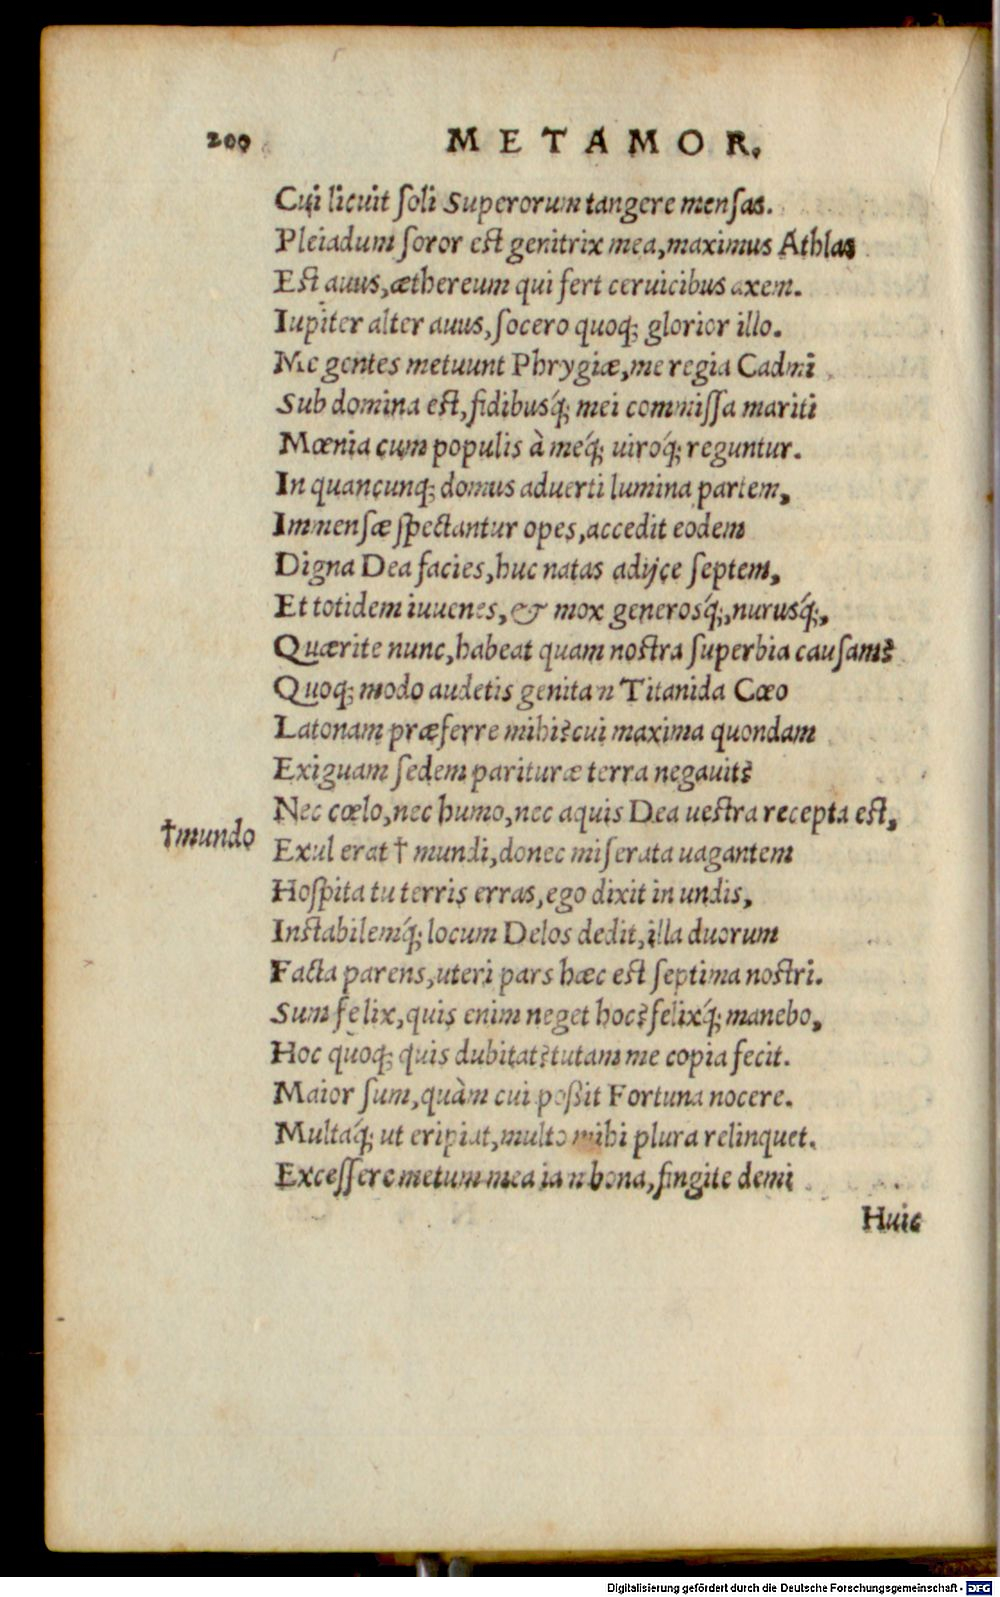 200 METAMOR.
Cui licuit ſoli Superorum tangere menſas.
Pleiadum ſoror eſt genitrix mea, maximus Athlas
Eſt auus, æthereum qui fert ceruicibus axem.
Iupiter alter auus, ſocero quoq; glorior illo.
Me gentes metuunt Phrygiæ, me regia Cadmi
Sub domina eſt, fidibusq́; mei commiſſa mariti
Mœnia cum populis à meq́; uiroq́; reguntur.
In quancunq; domus aduerti lumina partem,
Immenſæ ſpectantur opes, accedit eodem
Digna Dea facies, huc natas adijce ſeptem,
Et totidem iuuenes, & mox generosq́;, nurusq́;,
Quærite nunc, habeat quam noſtra ſuperbia cauſam?
Quoq; modo audetis genitan Titanida Cœo
Latonam præferre mihi? cui maxima quondam
Exiguam ſedem parituræ terra negauit?
Nec cœlo, nec humo, nec aquis Dea ueſtra recepta eſt,
†mundo
Exul erat † mundi, donec miſerata uagantem
Hoſpita tu terris erras, ego dixit in undis,
Inſtabilemq́; locum Delos dedit, illa duorum
Facta parens, uteri pars hæc eſt ſeptima noſtri.
Sum felix, quis enim neget hoc? felixq́; manebo,
Hoc quoq; quis dubitat? tutam me copia fecit.
Maior ſum, quàm cui poßit Fortuna nocere.
Multaq́; ut eripiat, multo mihi plura relinquet.
Exceſſere metum mea ian bona, fingite demi
Huic
Digitalisierung gefördert durch die Deutsche Forschungsgemeinschaft - DFG